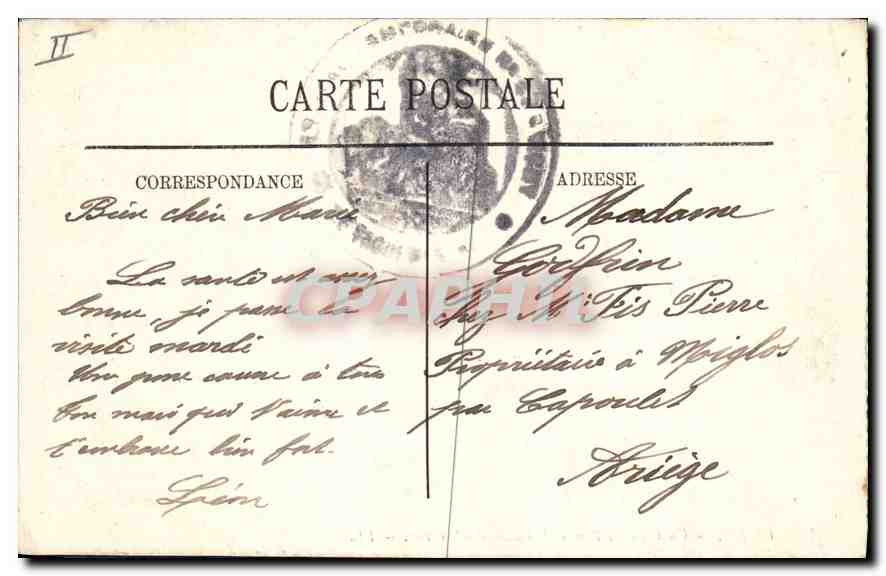 II
CARTE POSTALE
CORRESPONDANCE
ADRESSE
Bien chère Marie
La santé est assez
bonne, je passe la
visite mardi
Un gros à tous
Ton mari qui t'aime et
t'embrasse bien fort.
Léon
Madame
Godfrin
chez Mr Fis Pierre
Propriétaire à Miglos
par Capoulet
Ariège
CPAPHIL